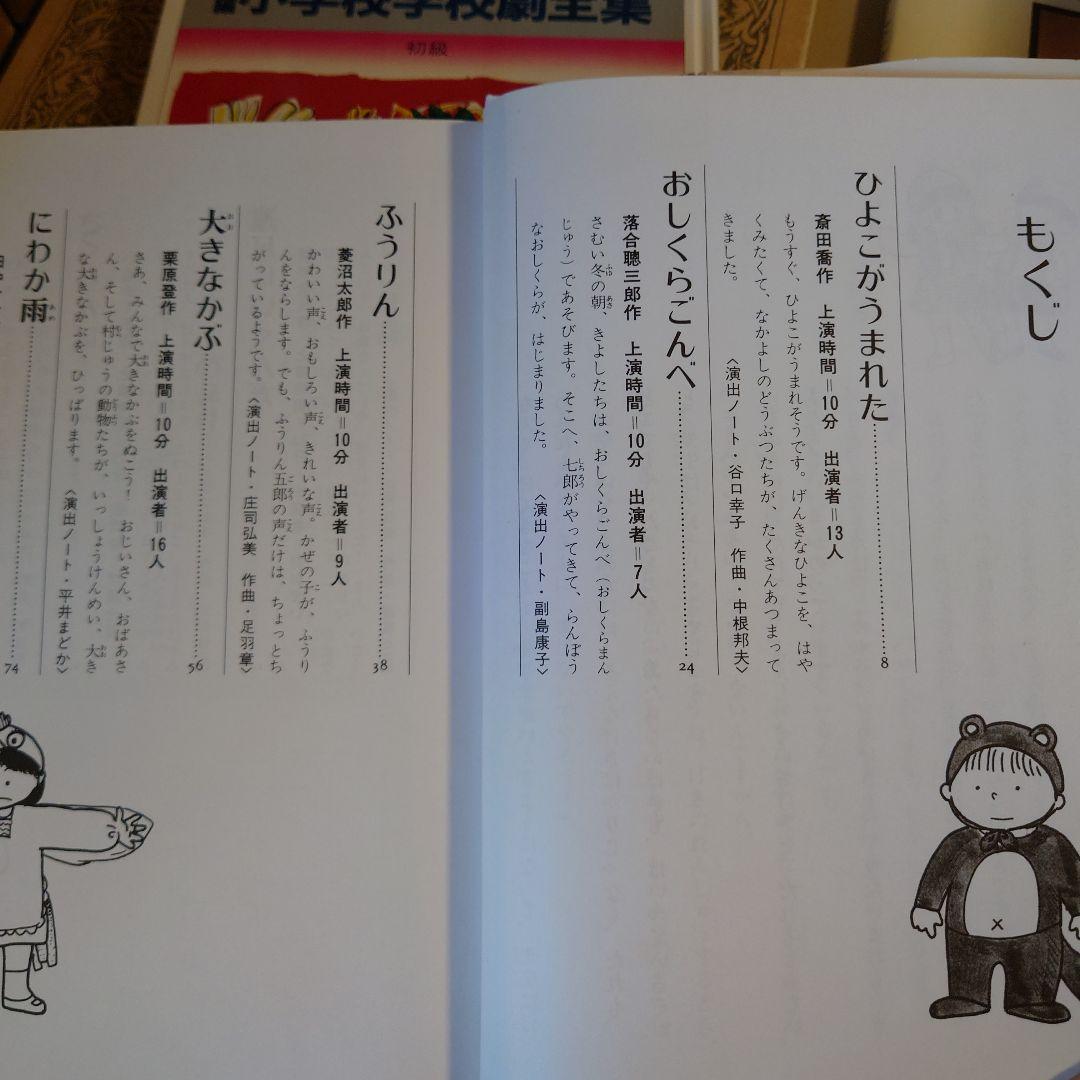 小学校学校劇全集
初級
もくじ
ひよこがうまれた……8
斎田喬作　上演時間＝10分　出演者＝13人
もうすぐ、ひよこがうまれそうです。げんきなひよこを、はや
くみたくて、なかよしのどうぶつたちが、たくさんあつまって
きました。　〈演出ノート・谷口幸子　作曲・中根邦夫〉
おしくらごんべ……24
落合聰三郎作　上演時間＝10分　出演者＝7人
さむい冬の朝、きよしたちは、おしくらごんべ（おしくらまん
じゅう）であそびます。そこへ、七郎がやってきて、らんぼう
なおしくらが、はじまりました。　〈演出ノート・副島康子〉
ふうりん……38
菱沼太郎作　上演時間＝10分　出演者＝9人
かわいい声、おもしろい声、きれいな声。かぜの子が、ふうり
んをならします。でも、ふうりん五郎の声だけは、ちょっとち
がっているようです。〈演出ノート・庄司弘美　作曲・足羽章〉
大きなかぶ……56
栗原登作　上演時間＝10分　出演者＝16人
さあ、みんなで大きなかぶをぬこう！　おじいさん、おばあさ
ん、そして村じゅうの動物たちが、いっしょうけんめい、大き
な大きなかぶを、ひっぱります。　〈演出ノート・平井まどか〉
にわか雨……74